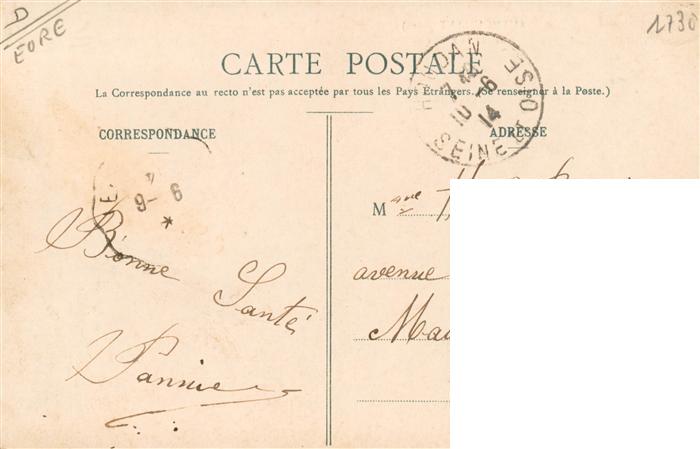 D
EURE
1730
CARTE POSTALE
La Correspondance au recto n'est pas acceptée par tous les Pays Étrangers. (Se renseigner à la Poste.)
CORRESPONDANCE
ADRESSE
HOUDAN
10 -6
14
SEINE ET OISE
9- 6
*
M
avenue
Bonne
Santé